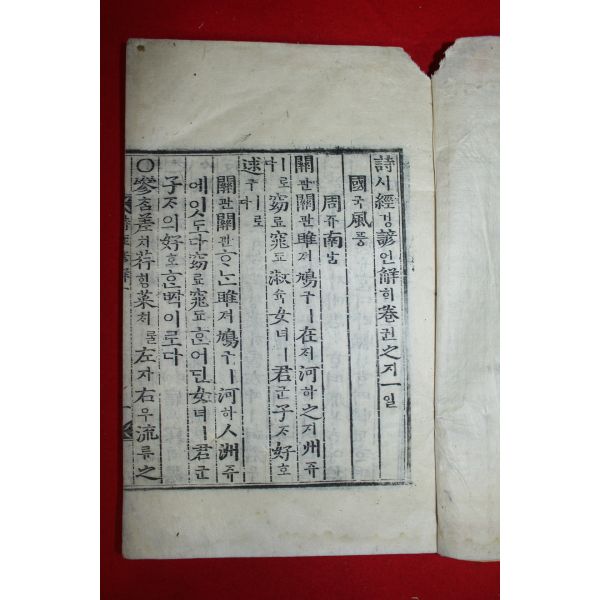 詩시經경諺언解ᄒᆡ卷권之지一일
國국風풍
周쥬南남
關관關관雎져鳩구ㅣ在ᄌᆡ河하之지洲쥬ㅣ로다窈요窕됴淑슉女녀ㅣ君군子ᄌᆞ好호
逑구ㅣ로다
關관關관ᄒᆞᆫ雎져鳩구ㅣ河하人洲쥬
에잇도다窈요窕됴ᄒᆞᆫ어딘女녀ㅣ君군
子ᄌᆞ의好호ᄒᆞᆫᄧᅡᆨ이로다
○參참差치荇ᄒᆡᆼ菜ᄎᆡ를左자右우流류之